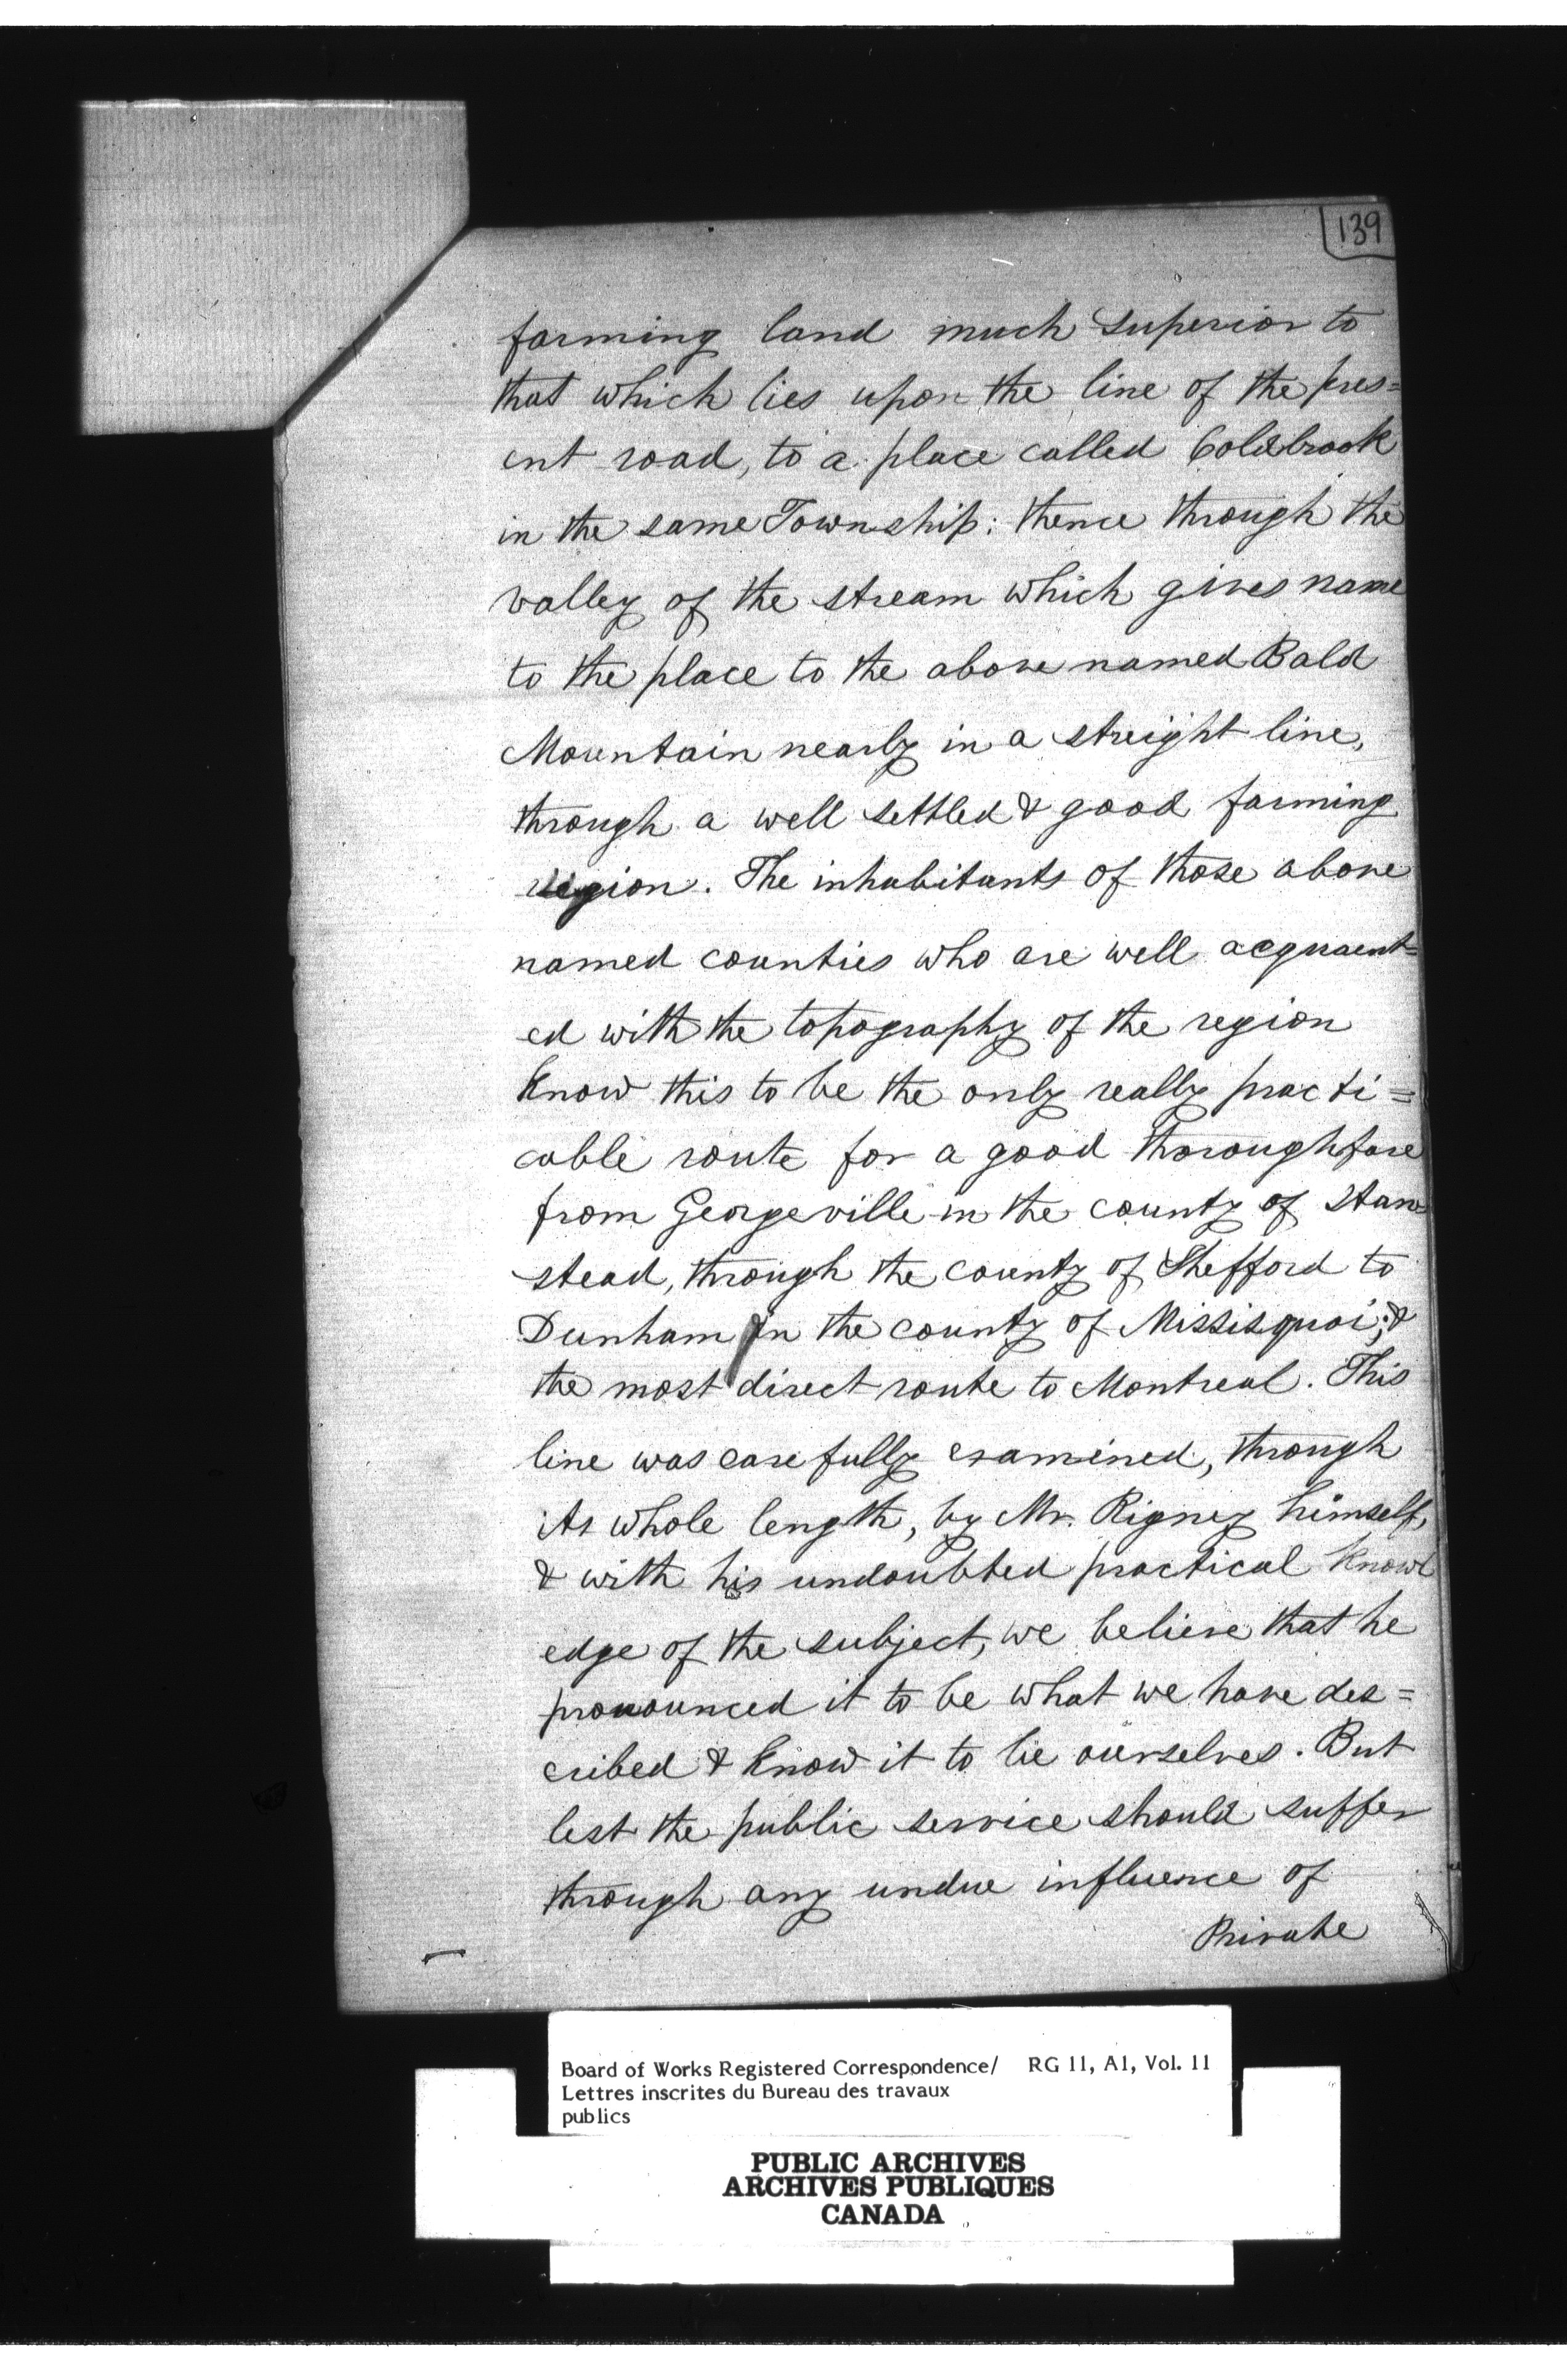 139
farming land much superior to
that which lies upon the line of the pres=
ent road, to a place called Coldbrook
in the same Township: thence through the
valley of the stream which gives name
to the place to the above named Bald
Mountain nearly in a streight line,
through a well settled & good farming
region. The inhabitants of those above
named counties who are well acquaent=
ed with the topography of the region
know this to be the only really practi=
cable route for a good thoroughfare
from Georgeville in the county of Stan=
stead, through the county of Shefford to
Dunham in the county of Missisquoi; &
the most direct route to Montreal. This
line was carefully examined, through
its whole length, by Mr. Rigney himself,
& with his undoubted practical knowl
edge of the subject, we believe that he
pronounced it to be what we have des=
cribed & know it to be ourselves. But
lest the public service should suffer
through any undue influence of
Private
Board of Works Registered Correspondence/ RG 11, A1, Vol. 11
Lettres inscrites du Bureau des travaux
publics
PUBLIC ARCHIVES
ARCHIVES PUBLIQUES
CANADA